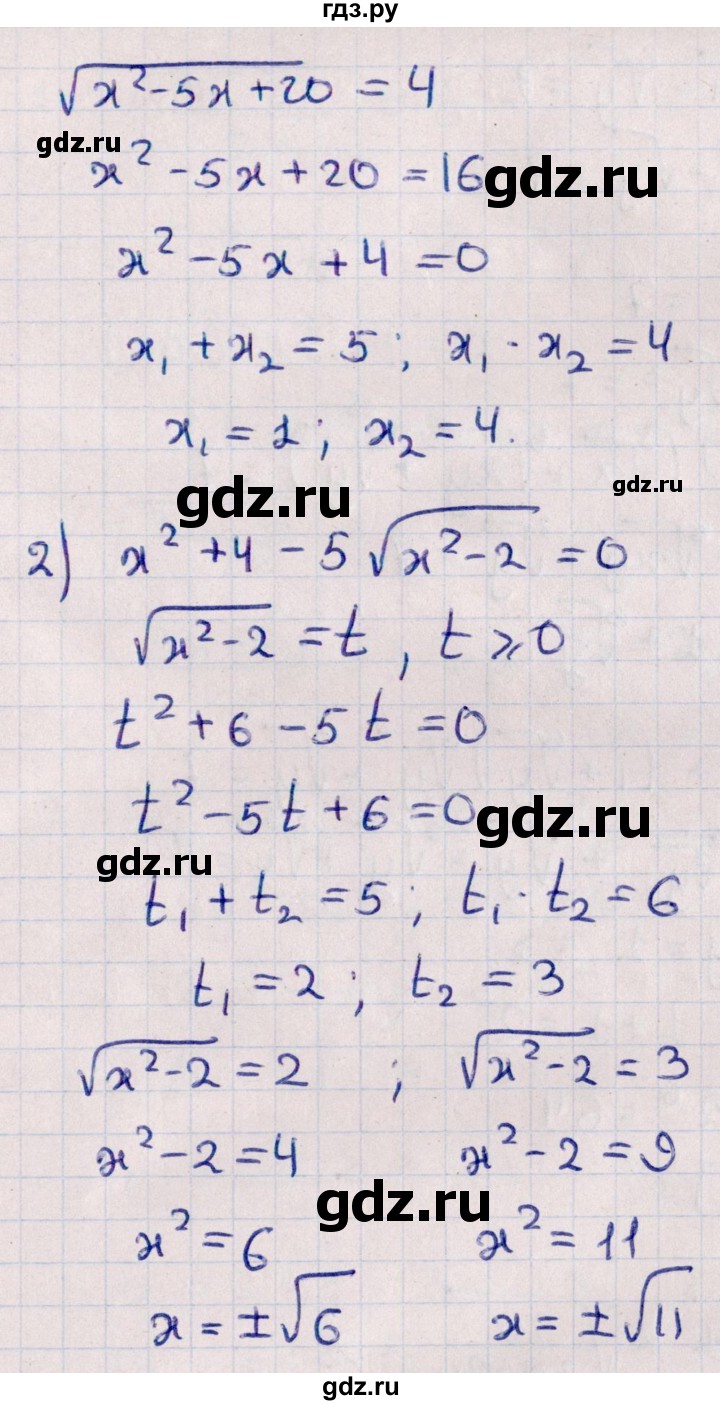 гдз.ру
√(x²-5x+20) = 4
gdz.ru
x² - 5x + 20 = 16 gdz.ru
x² - 5x + 4 = 0
x₁ + x₂ = 5; x₁ · x₂ = 4
x₁ = 1; x₂ = 4.
gdz.ru gdz.ru
2) x² + 4 - 5√(x²-2) = 0
√(x²-2) = t, t ⩾ 0
t² + 6 - 5t = 0
t² - 5t + 6 = 0 gdz.ru
gdz.ru
t₁ + t₂ = 5; t₁ · t₂ = 6
t₁ = 2; t₂ = 3
√(x²-2) = 2; √(x²-2) = 3
x² - 2 = 4 x² - 2 = 9
gdz.ru
x² = 6 x² = 11
x = ±√6 x = ±√11
gdz.ru